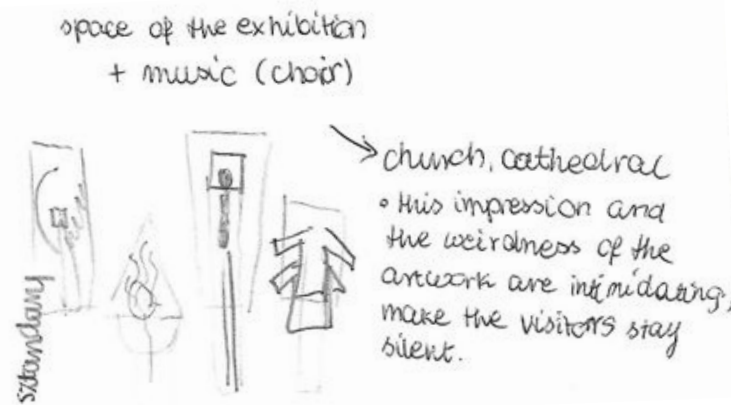 space of the exhibition
+ music (choir)
church, cathedral
• this impression and
the weirdness of the
artwork are intimidating,
make the visitors stay
silent.
sztandary